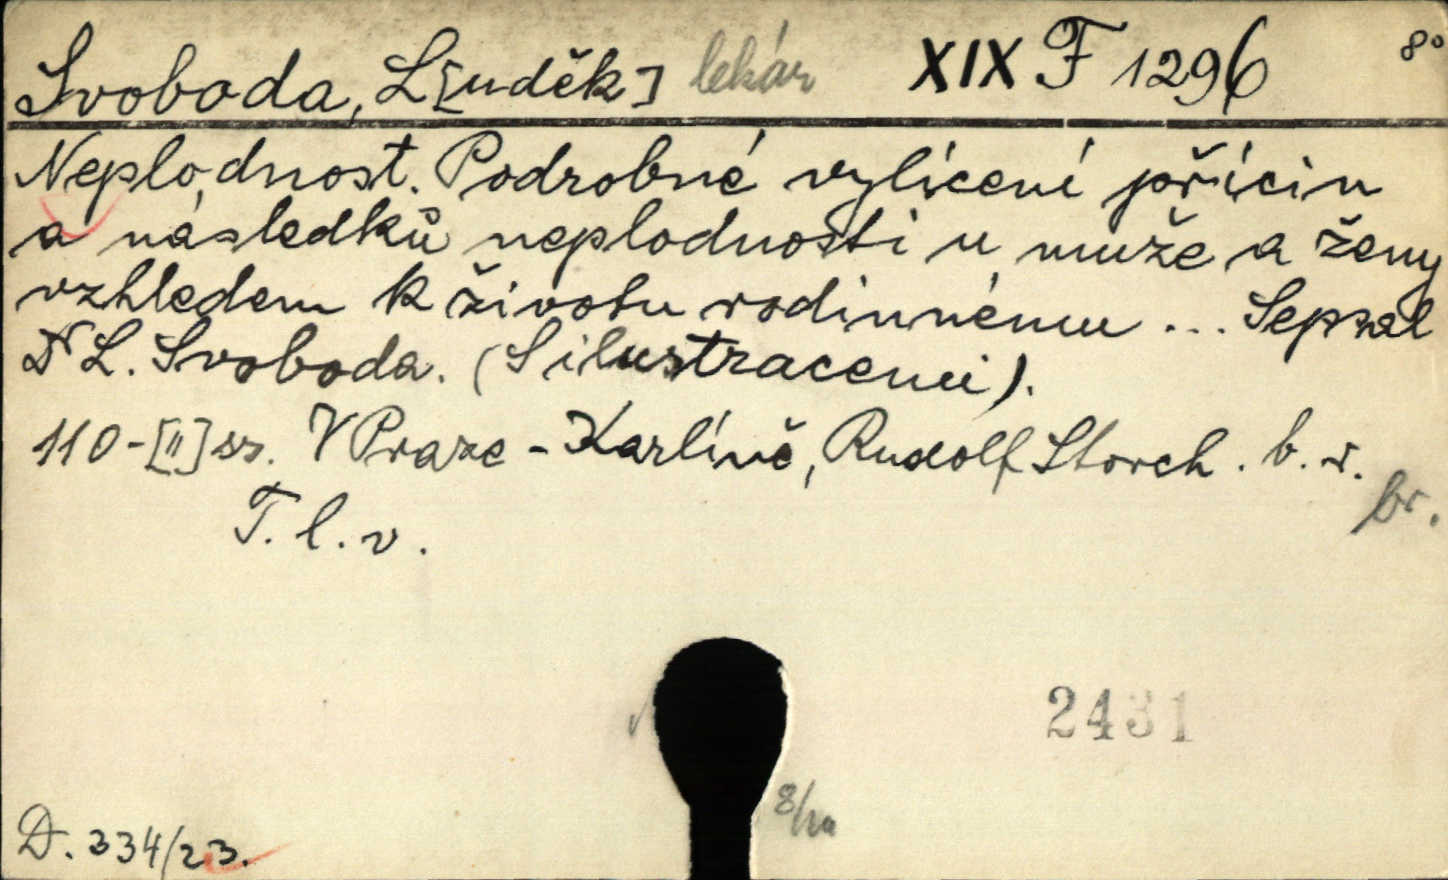 Svoboda, L[uděk] lekár XIX F 1296 8°
Neplodnost. Podrobné vylícení příčin
a následků neplodnosti u muže a ženy
vzhledem k životu rodinnému ... Sepsal
Dr L. Svoboda. (S ilustracemi).
110-[II] ss. V Praze - Karlíně, Rudolf Storch. b. r.
br.
T. l. v.
2431
D. 334/23.